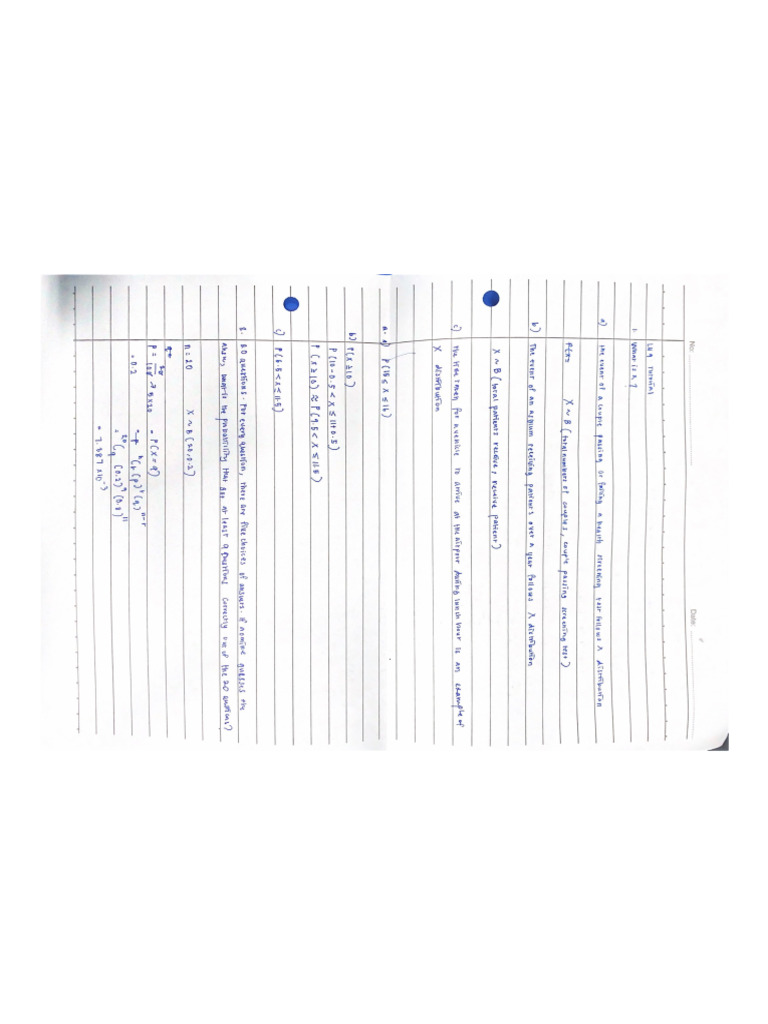 No:
Date:
L09 Tutorial
1. What is X?
a) The event of a couple passing or failing a health screening test follows X distribution
X ~ B (total numbers of couples, couple passing screening test)
b) The event of an asylum receiving patients over a year follows X distribution
X ~ B (total patients receive, receive patient)
c) The time taken for a vehicle to arrive at the airport during lunch hour is an example of
X distribution
a) P(15 ≤ X ≤ 16)
b) P(X ≥ 10)
P(10-0.5 < X ≤ 11+0.5)
P(X ≥ 10) ≈ P(9.5 < X ≤ 11.5)
c) P(6.5 < X ≤ 11.5)
8. 60 questions. For every question, there are five choices of answers. If nomine guesses the
answer, what is the probability that at least 9 questions correctly out of the 20 questions?
n = 20 X ~ B(20, 0.2)
= P(X = 9)
= 0.2
= ²⁰C₉ (0.2)⁹ (0.8)¹¹
= 7.387 × 10⁻³